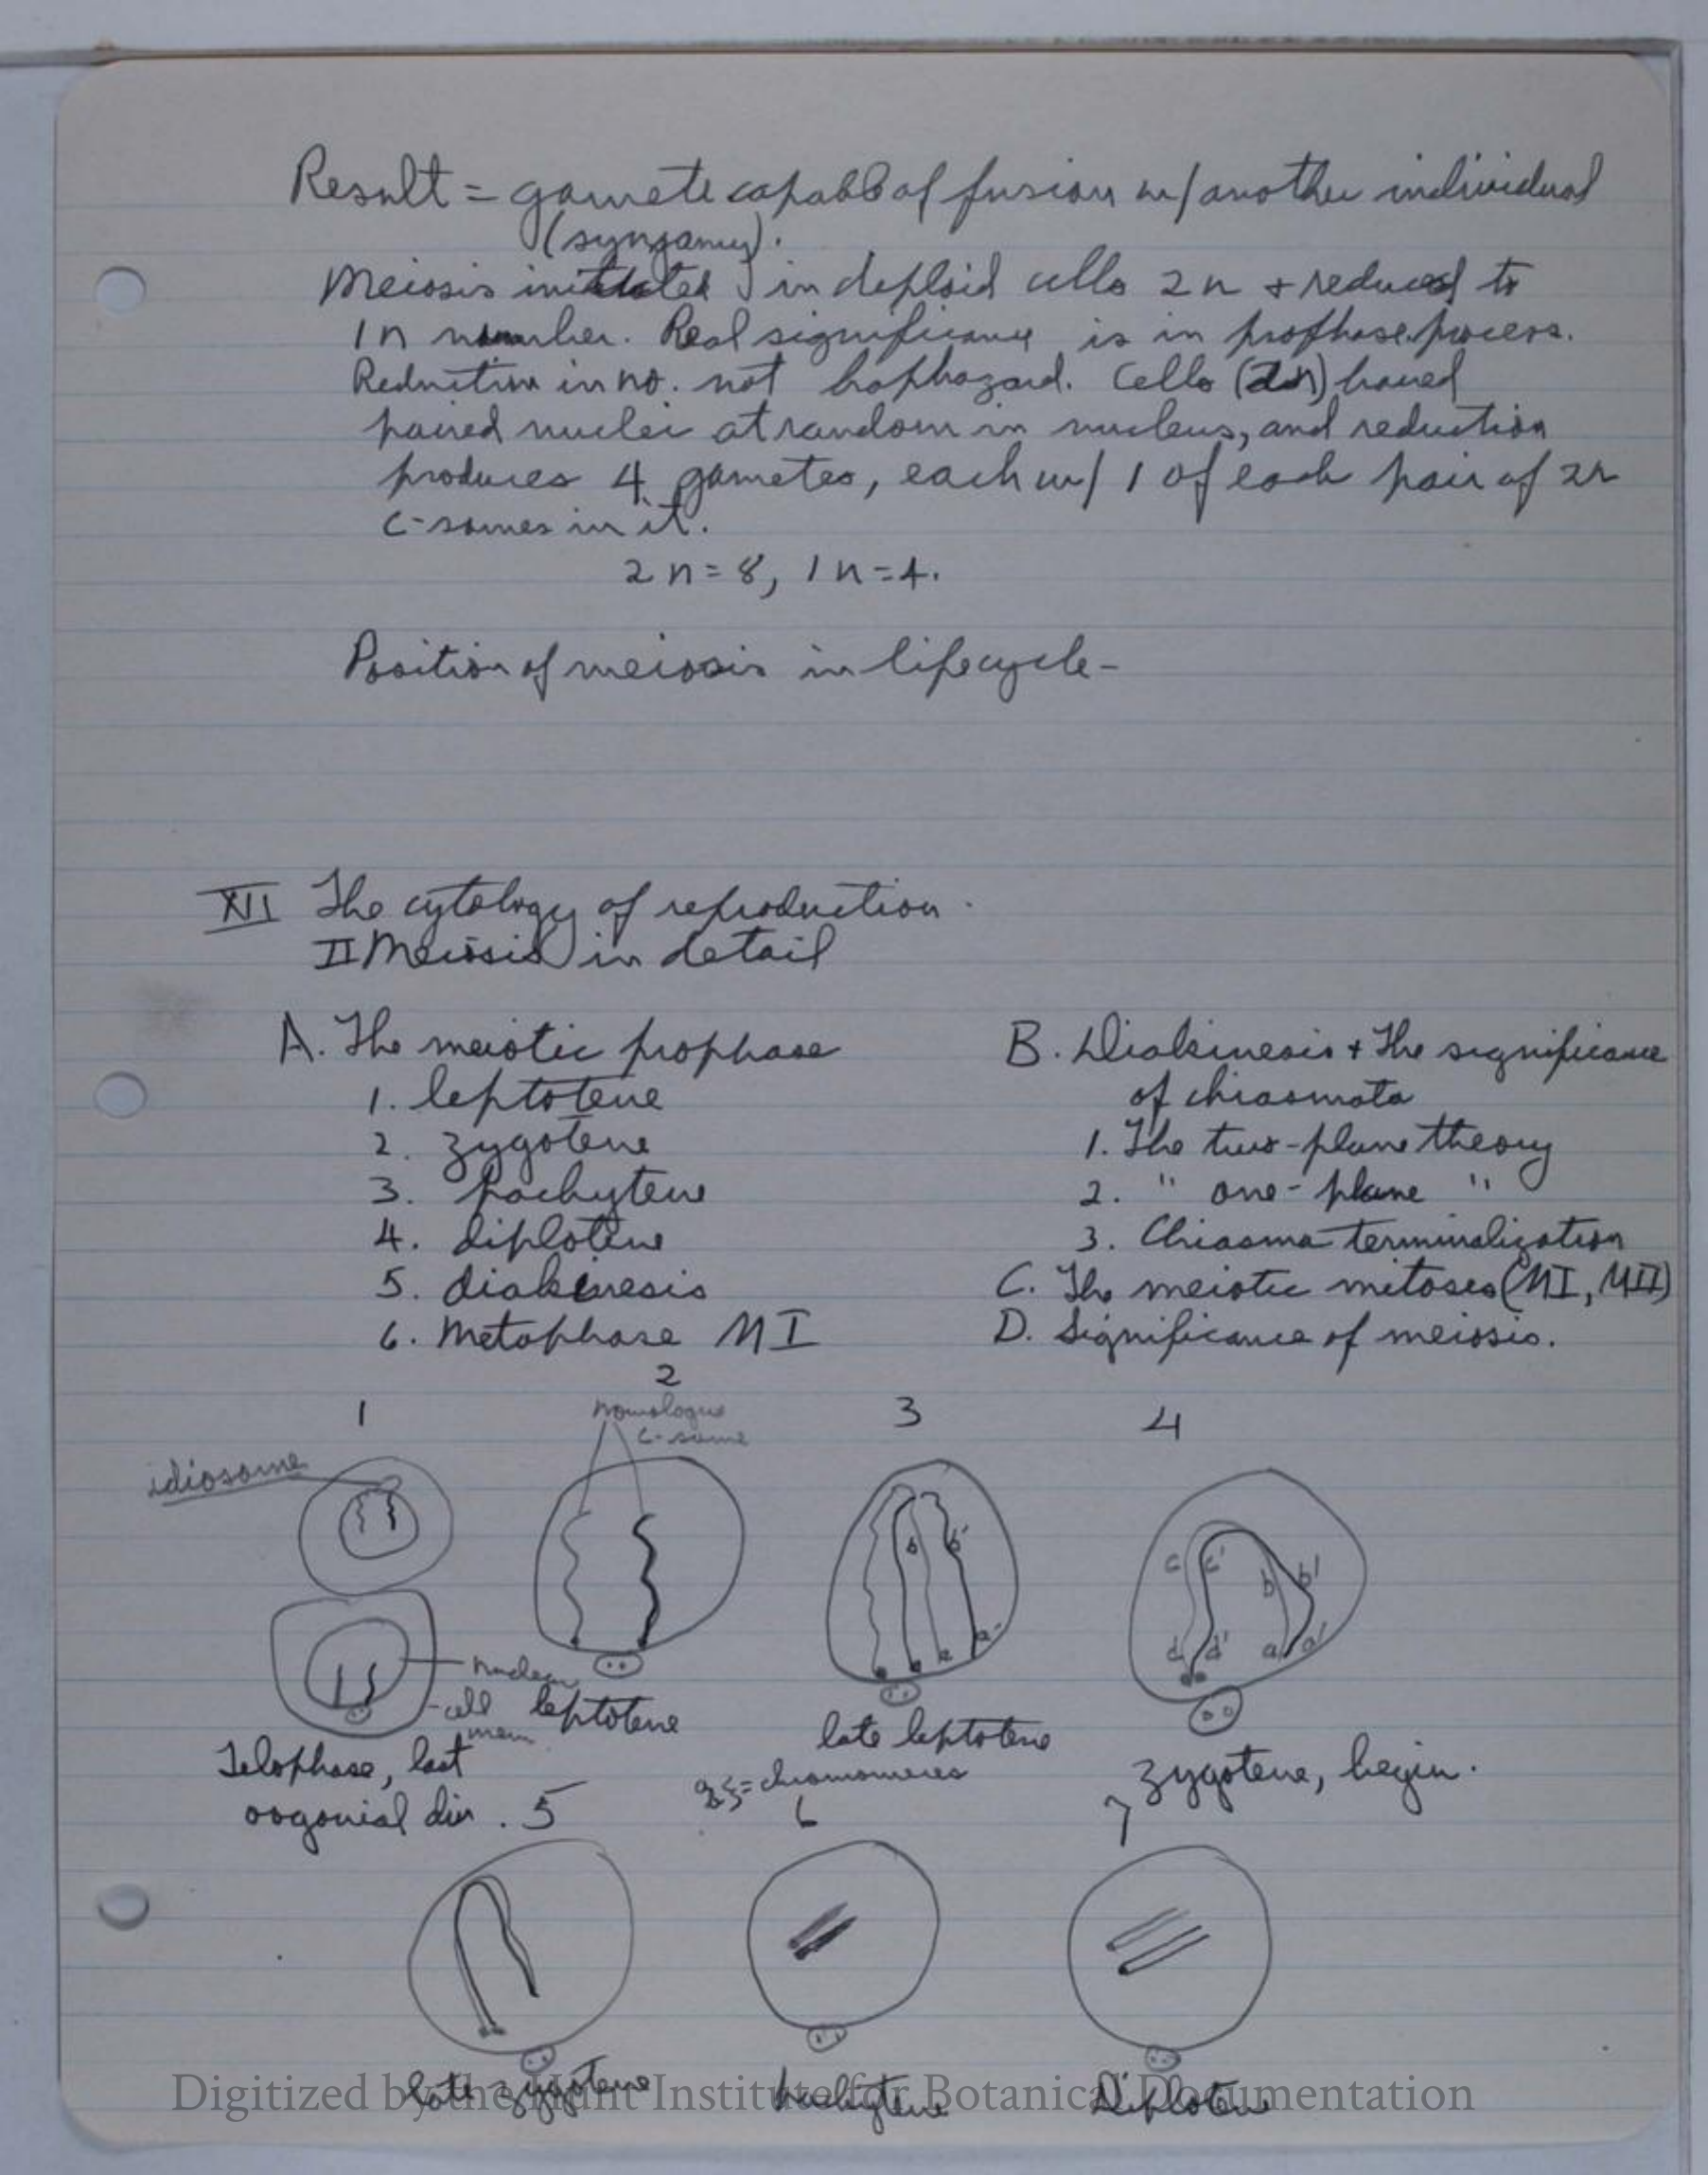 Result = gamete capable of fusion w/ another individual
(syngamy).
Meiosis initiated in deploid cells 2n + reduced to
1n number. Real significance is in prophase process.
Reduction in no. not haphazard. Cells (2n) haved
paired nuclei at random in nucleus, and reduction
produces 4 gametes, each w/ 1 of each pair of 2n
c-somes in it.
2n=8, 1n=4.
Position of meiosis in lifecycle-
XII The cytology of reproduction.
II Meiosis in detail
A. The meiotic prophase
1. leptotene
2. zygotene
3. pachytene
4. diplotene
5. diakinesis
6. Metaphase MI
B. Diakinesis + The significance
of chiasmata
1. The two-plane theory
2. " one-plane "
3. Chiasma terminalization
C. The meiotic mitoses (MI, MII)
D. Significance of meiosis.
1
2
3
4
homologue
c-some
idiosome
b b'
a a'
c c' b b'
d d' a a'
nucleus
cell
mem
leptotene
late leptotene
zygotene, begin.
Telophase, last
oogonial div.
= chromomeres
5
6
7
late zygotene
pachytene
Diplotene
Digitized by the Hunt Institute for Botanical Documentation